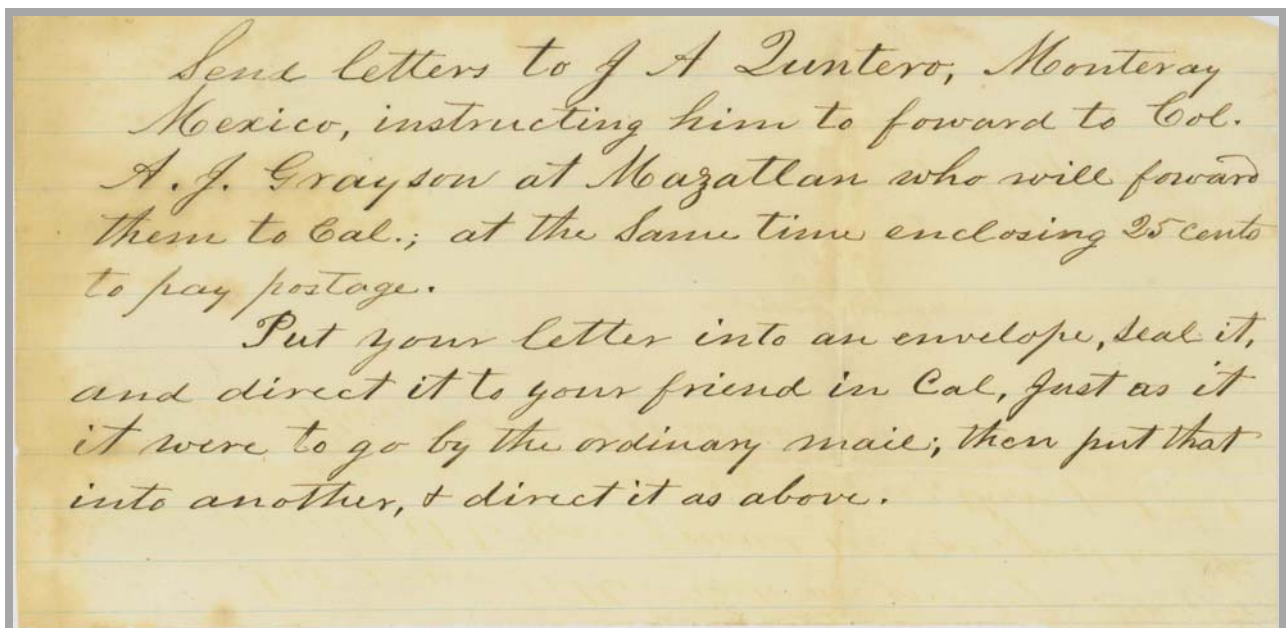 Send letters to J A Quntero, Monteray
Mexico, instructing him to foward to Col.
A. J. Grayson at Mazatlan who will foward
them to Cal.; at the same time enclosing 25 cents
to pay postage.
Put your letter into an envelope, seal it,
and direct it to your friend in Cal, just as it
it were to go by the ordinary mail; then put that
into another, & direct it as above.